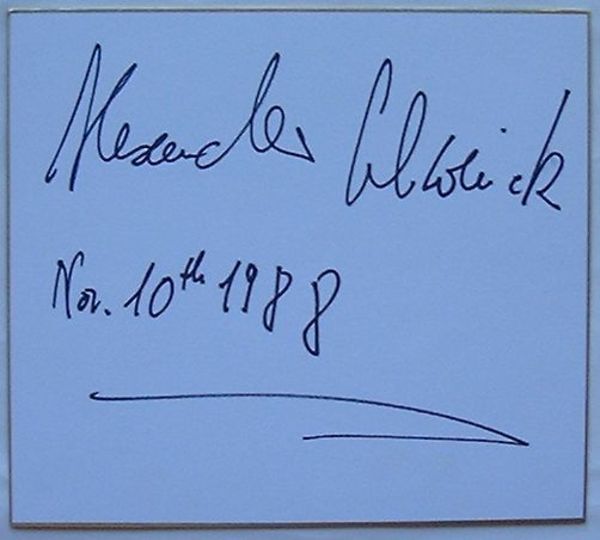 Alexander
Nov. 10th 1988